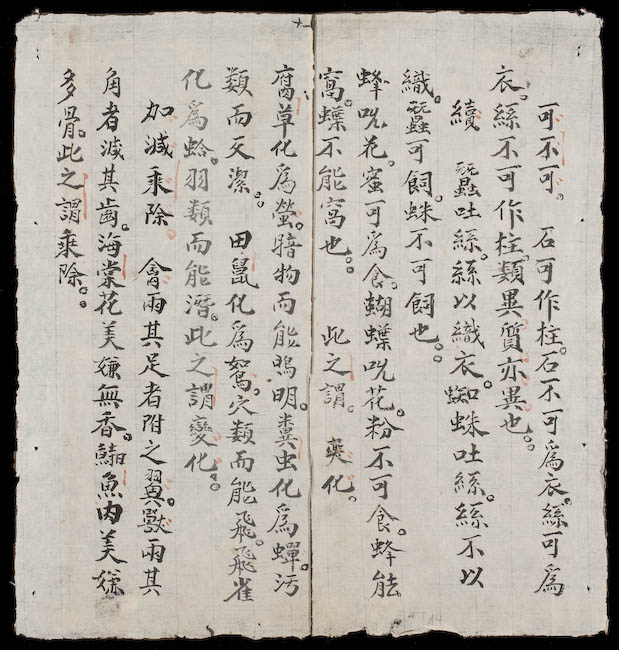 可不可。　石可作柱。石不可爲衣。絲可爲
衣。絲不可作柱。類異質亦異也。
續　蠶吐絲。絲以織衣。蜘蛛吐絲。絲不以
織。蠶可飼。蛛不可飼也。
蜂吮花。蜜可爲食。蝴蝶吮花。粉不可食。蜂能
窩。蝶不能窩也。　此之謂。　變化。
腐草化爲螢。暗物而能鳴明。糞虫化爲蟬。污
類而又潔。　田鼠化爲鴽。穴類而能飛。飛雀
化爲蛤。羽類而能潛。此之謂變化。
加減乘除　會兩其足者附之翼。獸兩其
角者減其齒。海棠花美嫌無香。鰣魚肉美嫌
多骨。此之謂乘除。
14